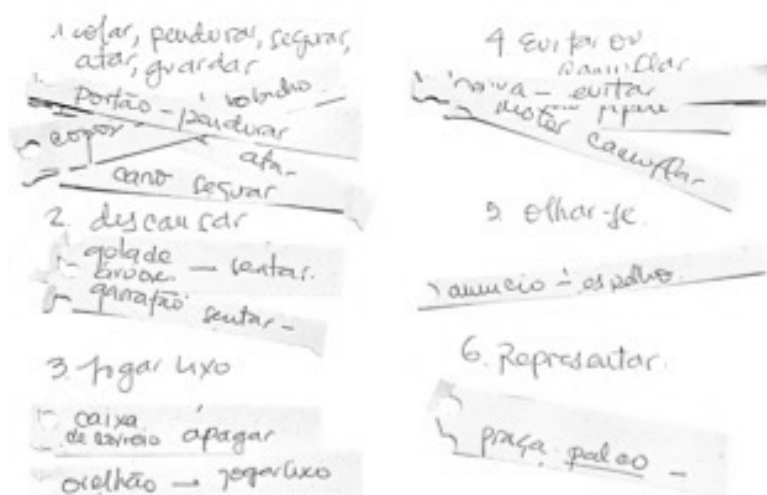 1. colar, pendurar, segurar,
atar, guardar
portão - pendurar
copor
atar
cano segurar
2. descansar
gola de
árvore → sentar.
garrafão sentar -
3. jogar lixo
caixa
de correio apagar
orelhão → jogar lixo
4 Evitar ou
camuflar
- evitar
camuflar
5. olhar-se
anuncio - espelho.
6. Representar.
praça palco -